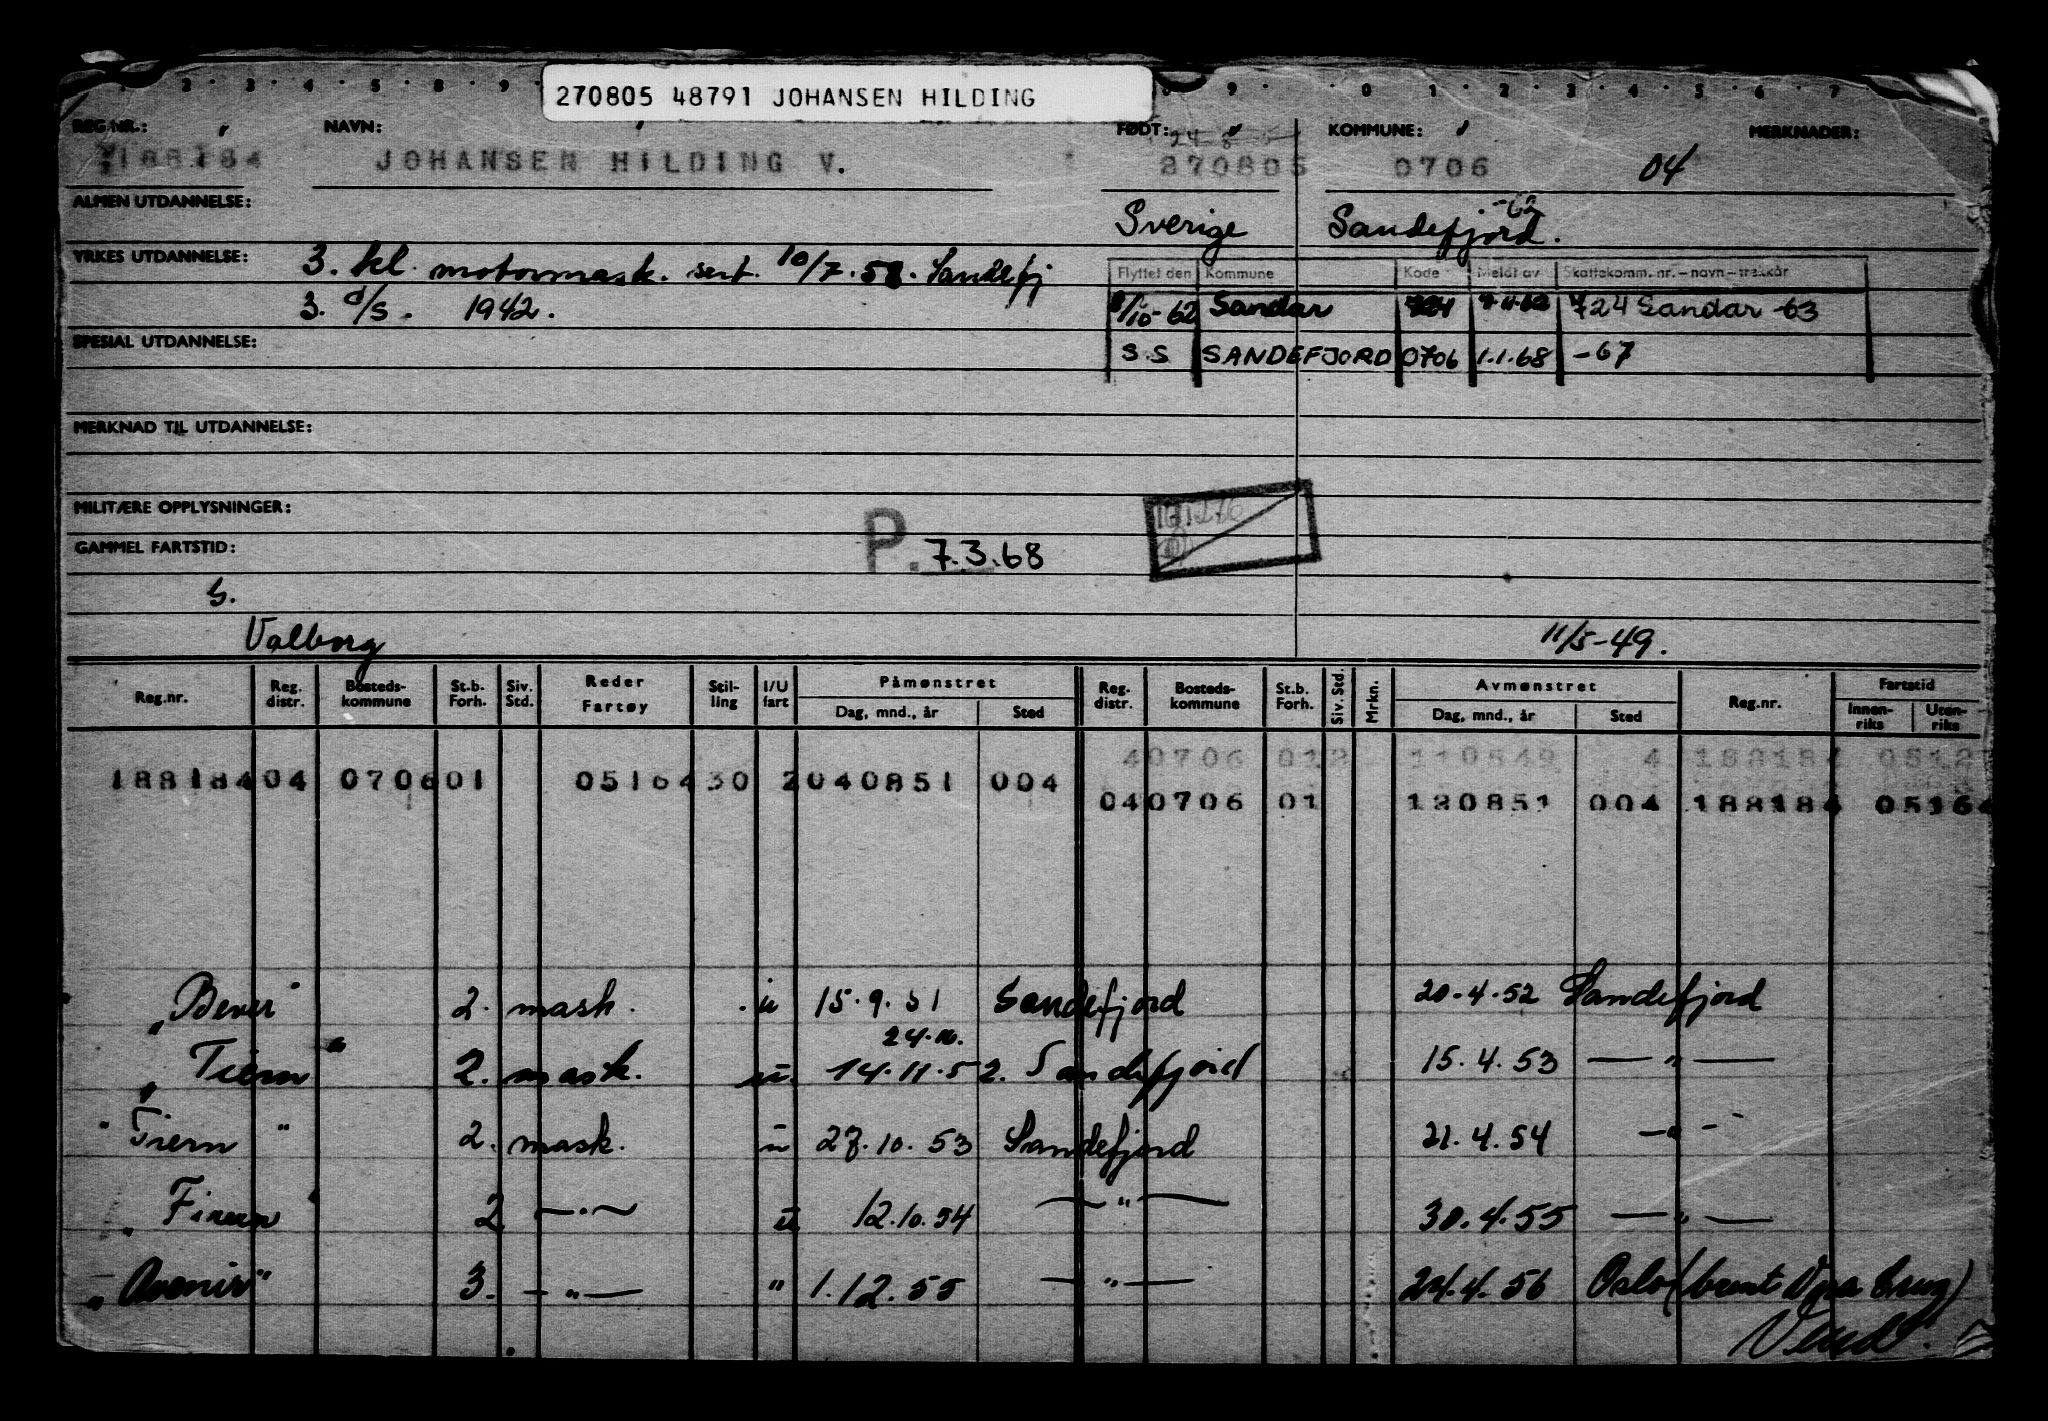 270805 48791 JOHANSEN HILDING
REG.NR.: NAVN: FØDT: KOMMUNE: MERKNADER:
188184 JOHANSEN HILDING V. 270805 0706 04
ALMEN UTDANNELSE: Sverige Sandefjord. -62
YRKES UTDANNELSE: 3. kl. motormask. sert. 10/7.58. Sandefj
Flyttet den Kommune Kode Meldt av Skattekomm. nr. – navn – trekkår
3. d/s. 1942. 8/10-62 Sandar 724 7-11-62 724 Sandar -63
SPESIAL UTDANNELSE: S.S SANDEFJORD 0706 1.1.68 -67
MERKNAD TIL UTDANNELSE:
MILITÆRE OPPLYSNINGER:
GAMMEL FARTSTID: P. 7.3.68
S.
Valborg 11/5-49.
Reg.nr. Reg. distr. Bosteds-kommune St.b. Forh. Siv. Std. Reder Fartøy Stil-ling I/U fart Påmønstret Dag, mnd., år Sted Reg. distr. Bosteds-kommune St.b. Forh. Siv. Std. Mrkn. Avmønstret Dag, mnd., år Sted Reg.nr. Fartstid Innen-riks Uten-riks
40706 012 110849 4 188184 0512
188184 04 0706 01 05164 30 2 040851 004
040706 01 120851 004 188184 05164
"Bever" 2. mask. u 15.9.51 Sandefjord 20.4.52 Sandefjord
24.10.
2. mask. u. 14.11.52. Sandefjord 15.4.53 — " —
2. mask. u 27.10.53 Sandefjord 21.4.54 — " -
2 — . — u 12.10.54 — " — 30.4.55 — " —
3. - " — " 1.12.55 — " — 24.4.56 Oslo